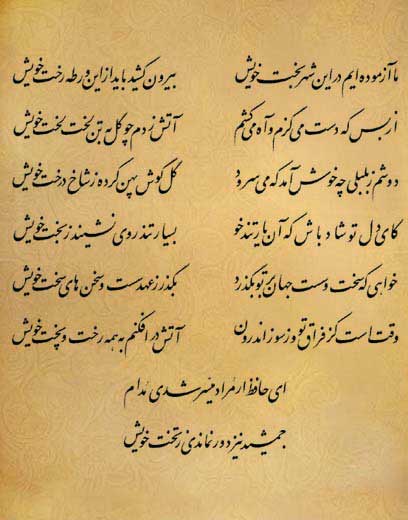 ما آزموده‌ایم در این شهر بخت خویش
بیرون کشید باید از این ورطه رخت خویش
از بس که دست می‌گزم و آه می‌کشم
آتش زدم چو گل به تن لخت لخت خویش
دوشم ز بلبلی چه خوش آمد که می‌سرود
گل گوش پهن کرده ز شاخ درخت خویش
کای دل تو شاد باش که آن یار تندخو
بسیار تند روی نشیند ز بخت خویش
خواهی که سخت و سست جهان بر تو بگذرد
بگذر ز عهد سست و سخن‌های سخت خویش
وقت است کز فراق تو وز سوز اندرون
آتش درافکنم به همه رخت و پخت خویش
ای حافظ ار مراد میسر شدی مدام
جمشید نیز دور نماندی ز تخت خویش